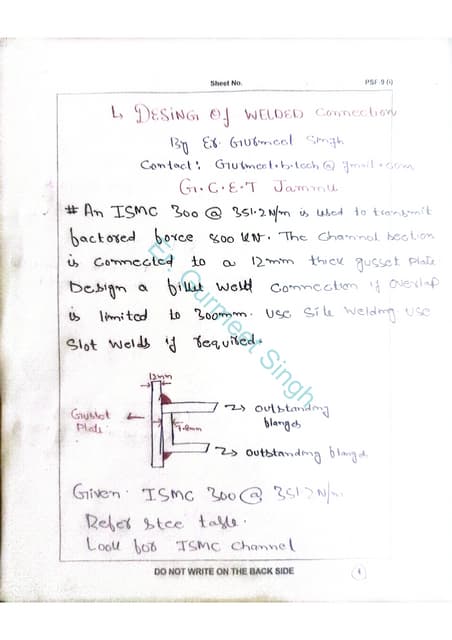 Sheet No. PSF-9 (i)
↳ DESING Of WELDED Connection
By Er. Gurmeet Singh
Contact: Gurmeet.b.tech@gmail.com
G.C.E.T Jammu
# An ISMC 300 @ 351.2 N/m is used to transmit
factored force 800 KN. The Channel section
is connected to a 12mm thick gusset plate
Design a fillet weld connection if overlap
is limited to 300mm. Use Side Welding use
Slot Welds if required.
Er. Gurmeet Singh
12mm
Gusset
Plate
outstanding
flanges
outstanding flanges
Given: ISMC 300 @ 351.2 N/m.
Refer stee table.
Look for ISMC Channel
DO NOT WRITE ON THE BACK SIDE